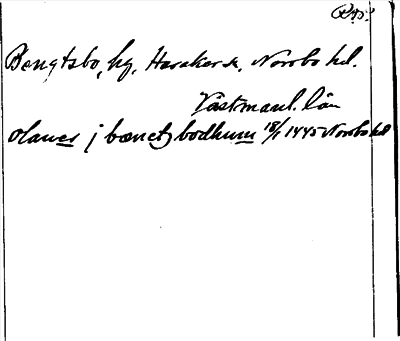 Bengtsbo, hg, Haraker sn. Norrbo hd.
Västmanl. län
olauer j bænctzbodhum 18/1 1445 Norrbo hd